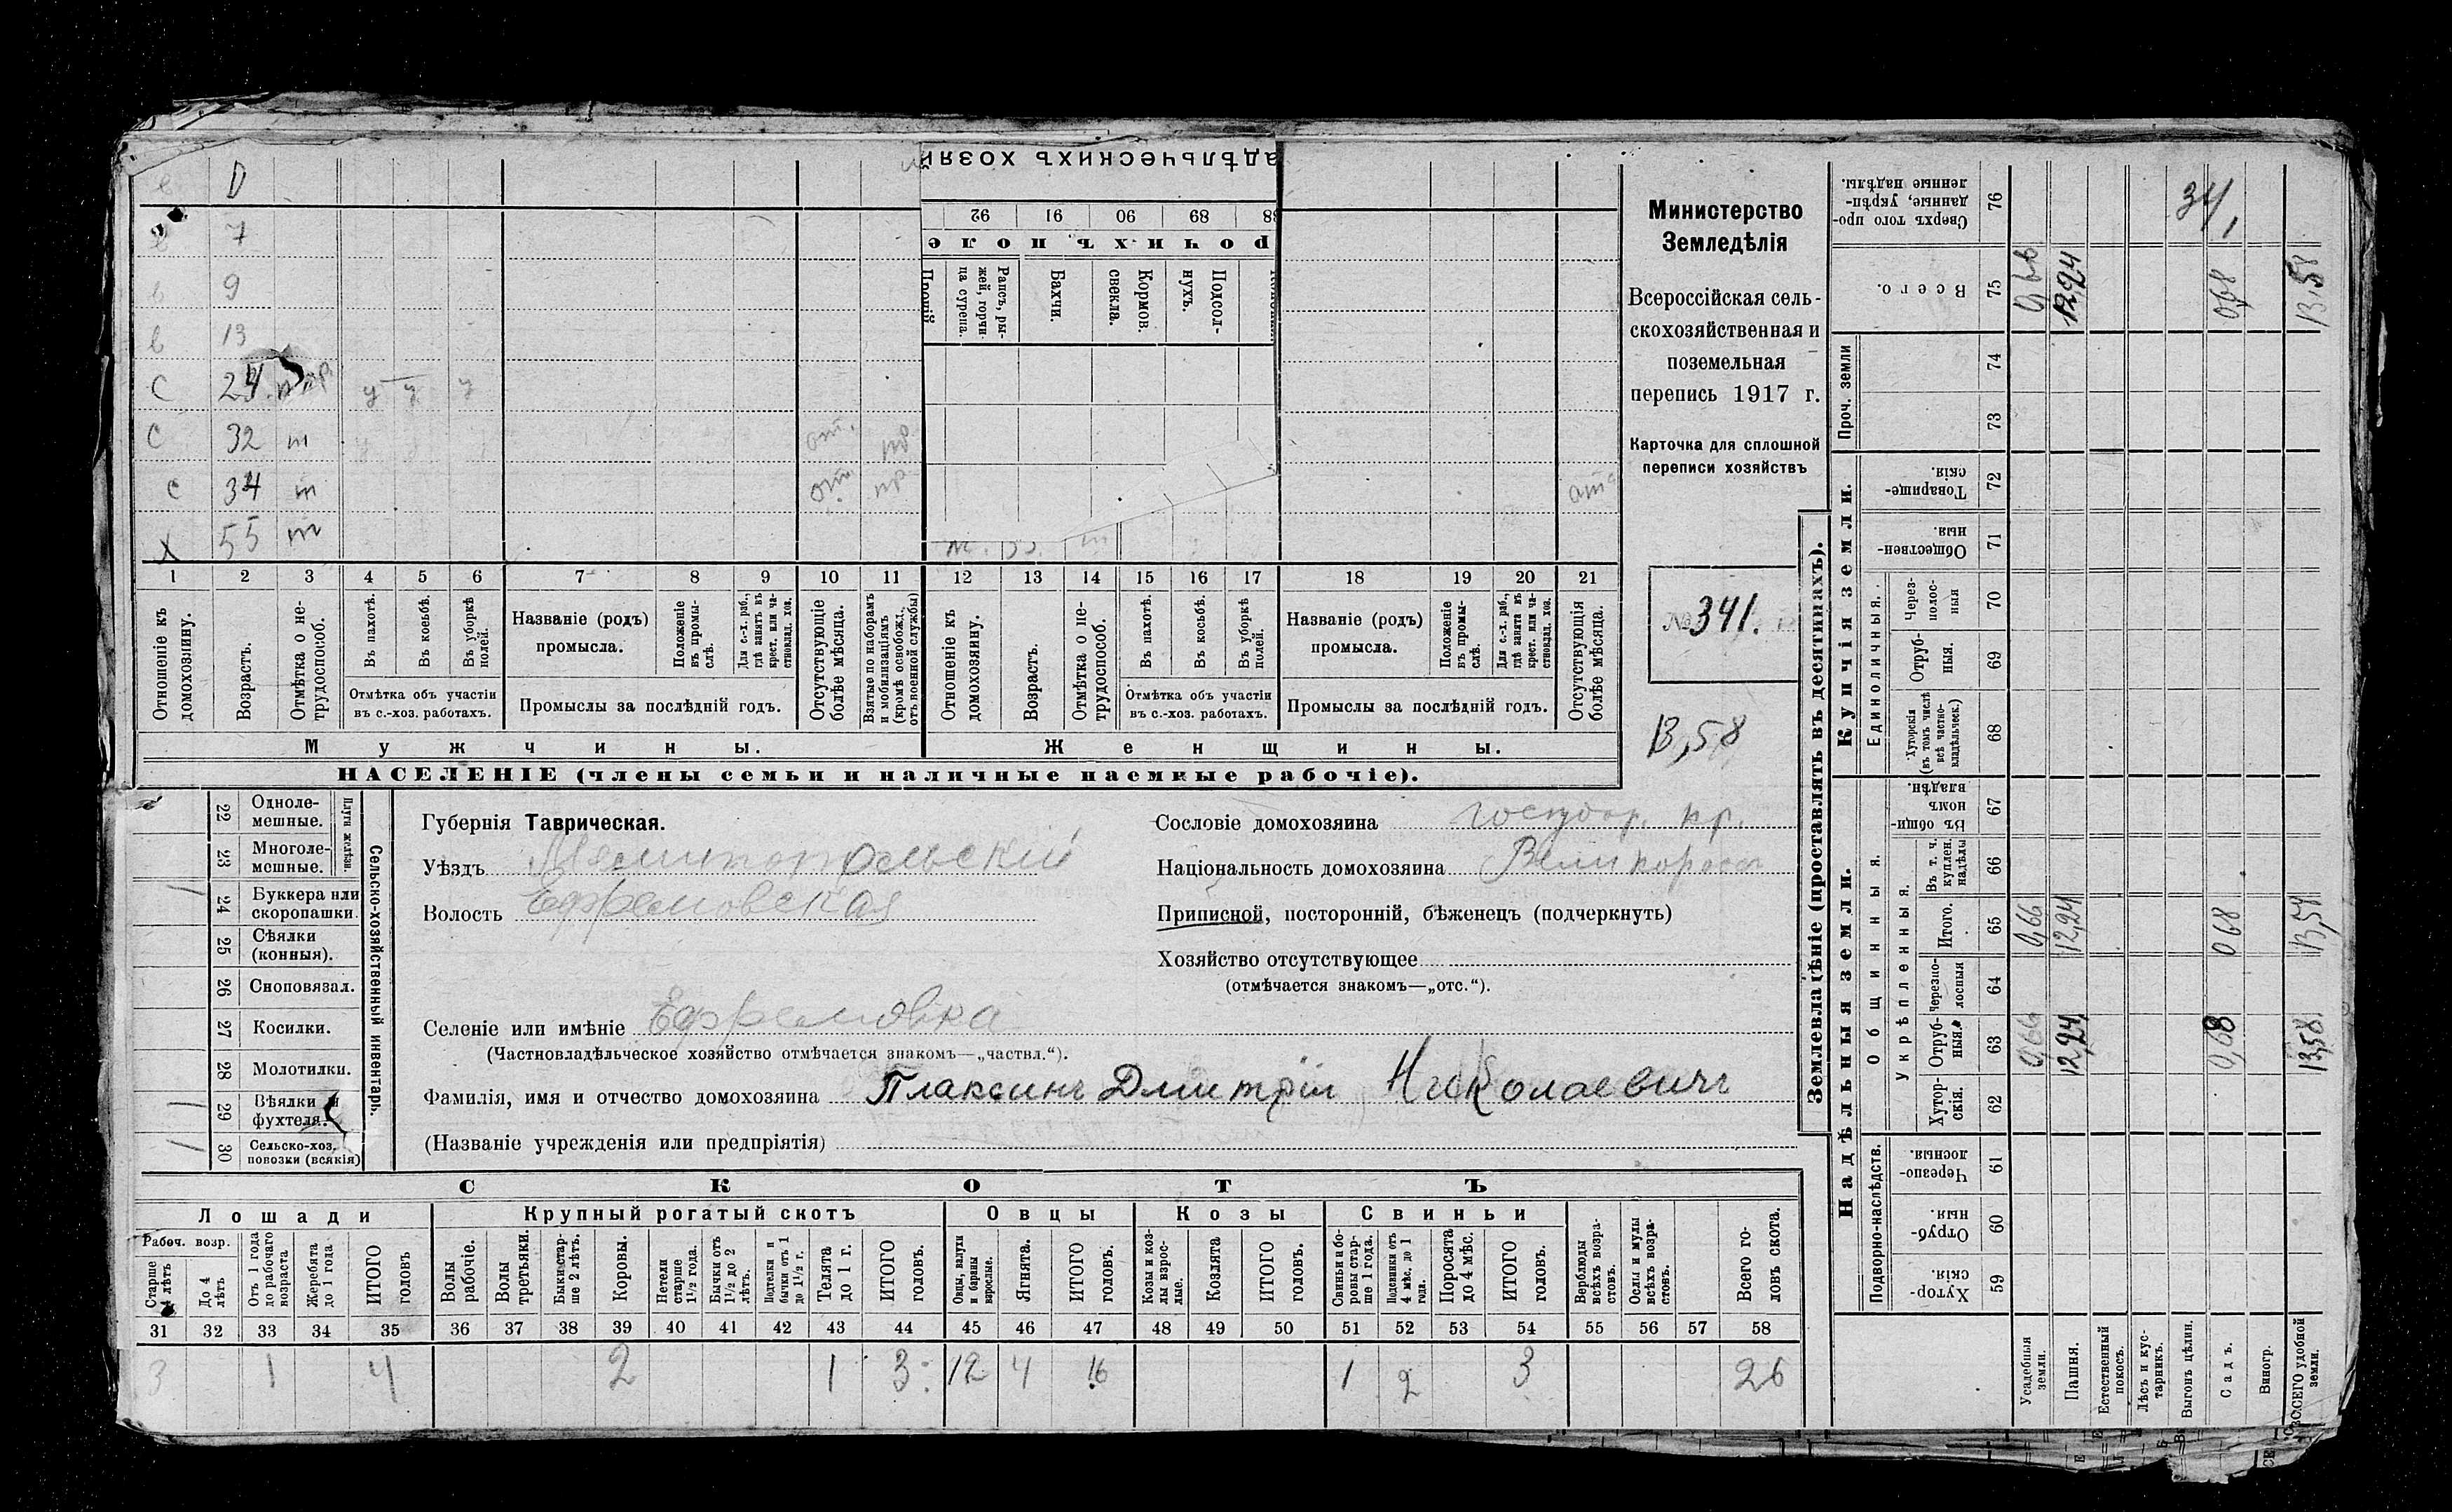 в D
в 7
в 9
в 13
С 24. у у у
С 32 т от. пр
с 34 т от. пр
Х 55 т
адѣльческихъ хозяй
92 91 90 89 88
Рапсъ, рыжей, горчица сурепа.
Бахчи.
Кормов. свекла.
Подсолнухъ.
1 2 3 4 5 6 7 8 9 10 11 12 13 14 15 16 17 18 19 20 21
Отношеніе къ домохозяину.
Возрастъ.
Отмѣтка о нетрудоспособ.
Въ пахотѣ.
Въ косьбѣ.
Въ уборкѣ полей.
Отмѣтка объ участіи въ с.-хоз. работахъ.
Названіе (родъ) промысла.
Положеніе въ промыслѣ.
Для с.-х. раб., гдѣ занятъ въ крест. или частновлад. хоз.
Промыслы за послѣдній годъ.
Отсутствующіе болѣе мѣсяца.
Взятые по наборамъ и мобилизаціямъ (кромѣ освобожд. отъ военной службы)
Отношеніе къ домохозяину.
Возрастъ.
Отмѣтка о нетрудоспособ.
Въ пахотѣ.
Въ косьбѣ.
Въ уборкѣ полей.
Отмѣтка объ участіи въ с.-хоз. работахъ.
Названіе (родъ) промысла.
Положеніе въ промыслѣ.
Для с.-х. раб., гдѣ занята въ крест. или частновлад. хоз.
Промыслы за послѣдній годъ.
Отсутствующія болѣе мѣсяца.
Мужчины.
Женщины.
НАСЕЛЕНІЕ (члены семьи и наличные наемные рабочіе).
Министерство
Земледѣлія
Всероссійская сель-
скохозяйственная и
поземельная
перепись 1917 г.
Карточка для сплошной
переписи хозяйствъ
№ 341.
13,58
22 Одноле-мешные.
23 Многоле-мешные.
Плуги желѣзн.
24 Буккера или скоропашки.
25 Сѣялки (конныя).
26 Сноповязал.
27 Косилки.
28 Молотилки.
29 Вѣялки и фухтеля.
30 Сельско-хоз. повозки (всякія)
Сельско-хозяйственный инвентарь.
Губернія Таврическая.
Уѣздъ Мелитопольскій
Волость Ефремовская
Селеніе или имѣніе Ефремовка
(Частновладѣльческое хозяйство отмѣчается знакомъ—„частвл.“).
Фамилія, имя и отчество домохозяина Плаксинъ Дмитрій Николаевичъ
(Названіе учрежденія или предпріятія)
Сословіе домохозяина государ. кр.
Національность домохозяина Великороссъ
Приписной, посторонній, бѣженецъ (подчеркнуть)
Хозяйство отсутствующее
(отмѣчается знакомъ—„отс.“).
СКОТЪ
Лошади Крупный рогатый скотъ Овцы Козы Свиньи
Рабоч. возр.
Старше 4 лѣтъ
До 4 лѣтъ
Отъ 1 года до рабочаго возраста
Жеребята до 1 года
ИТОГО головъ
Волы рабочіе.
Волы третьяки.
Быки старше 2 лѣтъ.
Коровы.
Нетели старше 1½ года.
Бычки отъ 1½ до 2 лѣтъ.
Подтелки и бычки отъ 1 до 1½ г.
Телята до 1 г.
ИТОГО головъ.
Овцы, валухи и бараны взрослые.
Ягнята.
ИТОГО головъ.
Козы и козлы взрослые.
Козлята
ИТОГО головъ.
Свиньи и боровы старше 1 года.
Подсвинки отъ 4 мѣс. до 1 года.
Поросята до 4 мѣс.
ИТОГО головъ.
Верблюды всѣхъ возрастовъ.
Ослы и мулы всѣхъ возрастовъ.
Всего головъ скота.
31 32 33 34 35 36 37 38 39 40 41 42 43 44 45 46 47 48 49 50 51 52 53 54 55 56 57 58
3 1 4 2 1 3 12 4 16 1 2 3 26
Землевладѣніе (проставлять въ десятинахъ).
Сверхъ того проданные, укрѣпленные надѣлы. 76 34,
Всего. 75 0,66 12,24 0,68 13,58
Проч. земли 74 73
Купчія земли.
Товарищескія. 72
Общественныя. 71
Единоличныя.
Черезполосныя 70
Отрубныя. 69
Хуторскія (въ томъ числѣ всѣ частновладѣльческ.) 68
Надѣльныя земли.
Общинныя.
Въ общинномъ владѣн. 67
Укрѣпленныя.
Въ т. ч. куплен. надѣлы 66
Итого. 65 0,66 12,24 0,68 13,58
Черезполосныя 64
Отрубныя. 63 0,66 12,24 0,68 13,58
Хуторскія. 62
Подворно-наслѣдств.
Черезполосныя. 61
Отрубныя. 60
Хуторскія 59
Усадебныя земли.
Пашня.
Естественный покосъ.
Лѣсъ и кустарникъ.
Выгонъ цѣлин.
Садъ.
Виногр.
ВСЕГО удобной земли.